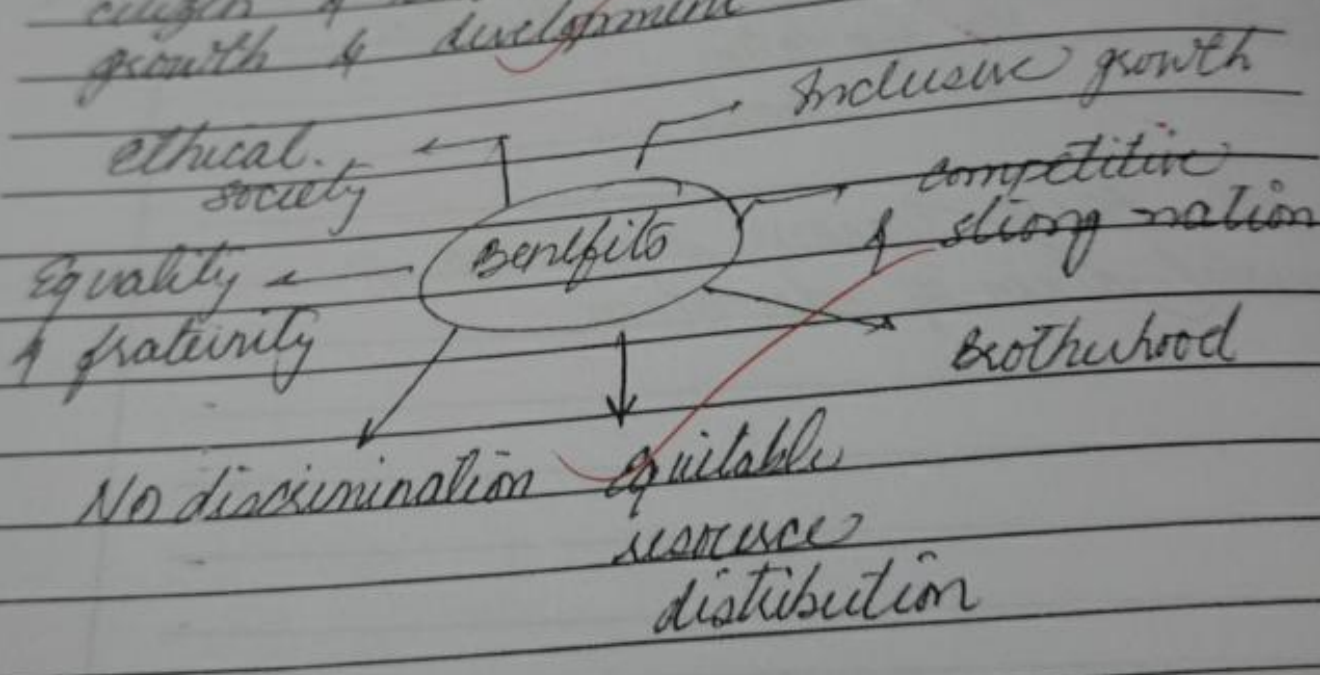 growth & development
Inclusive growth
ethical.
society
competitive
& strong nation
Benefits
Equality
& fraternity
Brotherhood
No discrimination
Equitable
resource
distribution